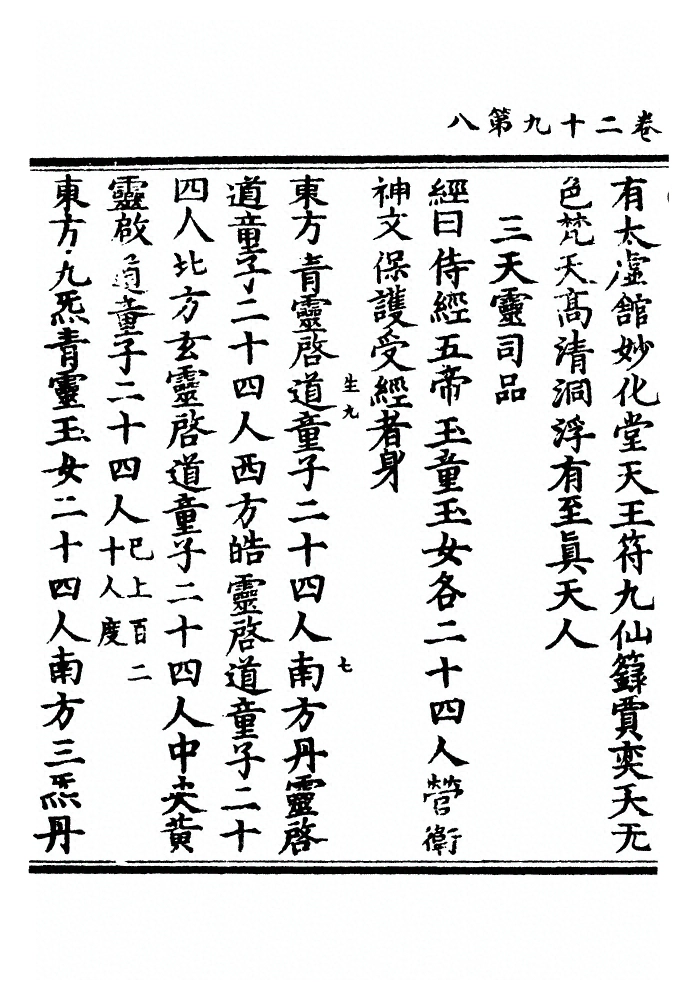 卷二十九第八
有太虛館妙化堂天王符九仙籙賈奕天无
色梵天髙清洞浮有至眞天人
三天靈司品
經曰侍經五帝玉童玉女各二十四人營衛
神文保護受經者身
生九
七
東方青靈啓道童子二十四人南方丹靈啓
道童子二十四人西方皓靈啓道童子二十
四人北方玄靈啓道童子二十四人中央黄
靈啟道童子二十四人巳上百二十人度
東方九炁青靈玉女二十四人南方三炁丹